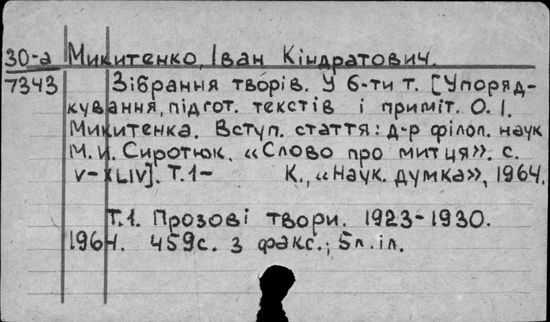 30-а Микитенко, Іван Кіндратович.
7343 Зібрання творів. У 6-ти т. [Упоряд-
кування, підгот. текстів і приміт. О. І.
Микитенка. Вступ. стаття: д-р філол. наук
М. Й. Сиротюк. «Слово про митця». с.
V-XLIV]. Т.1- К., «Наук. думка», 1964.
Т.1. Прозові твори. 1923-1930.
1964. 459с. з факс.; 5л. іл.